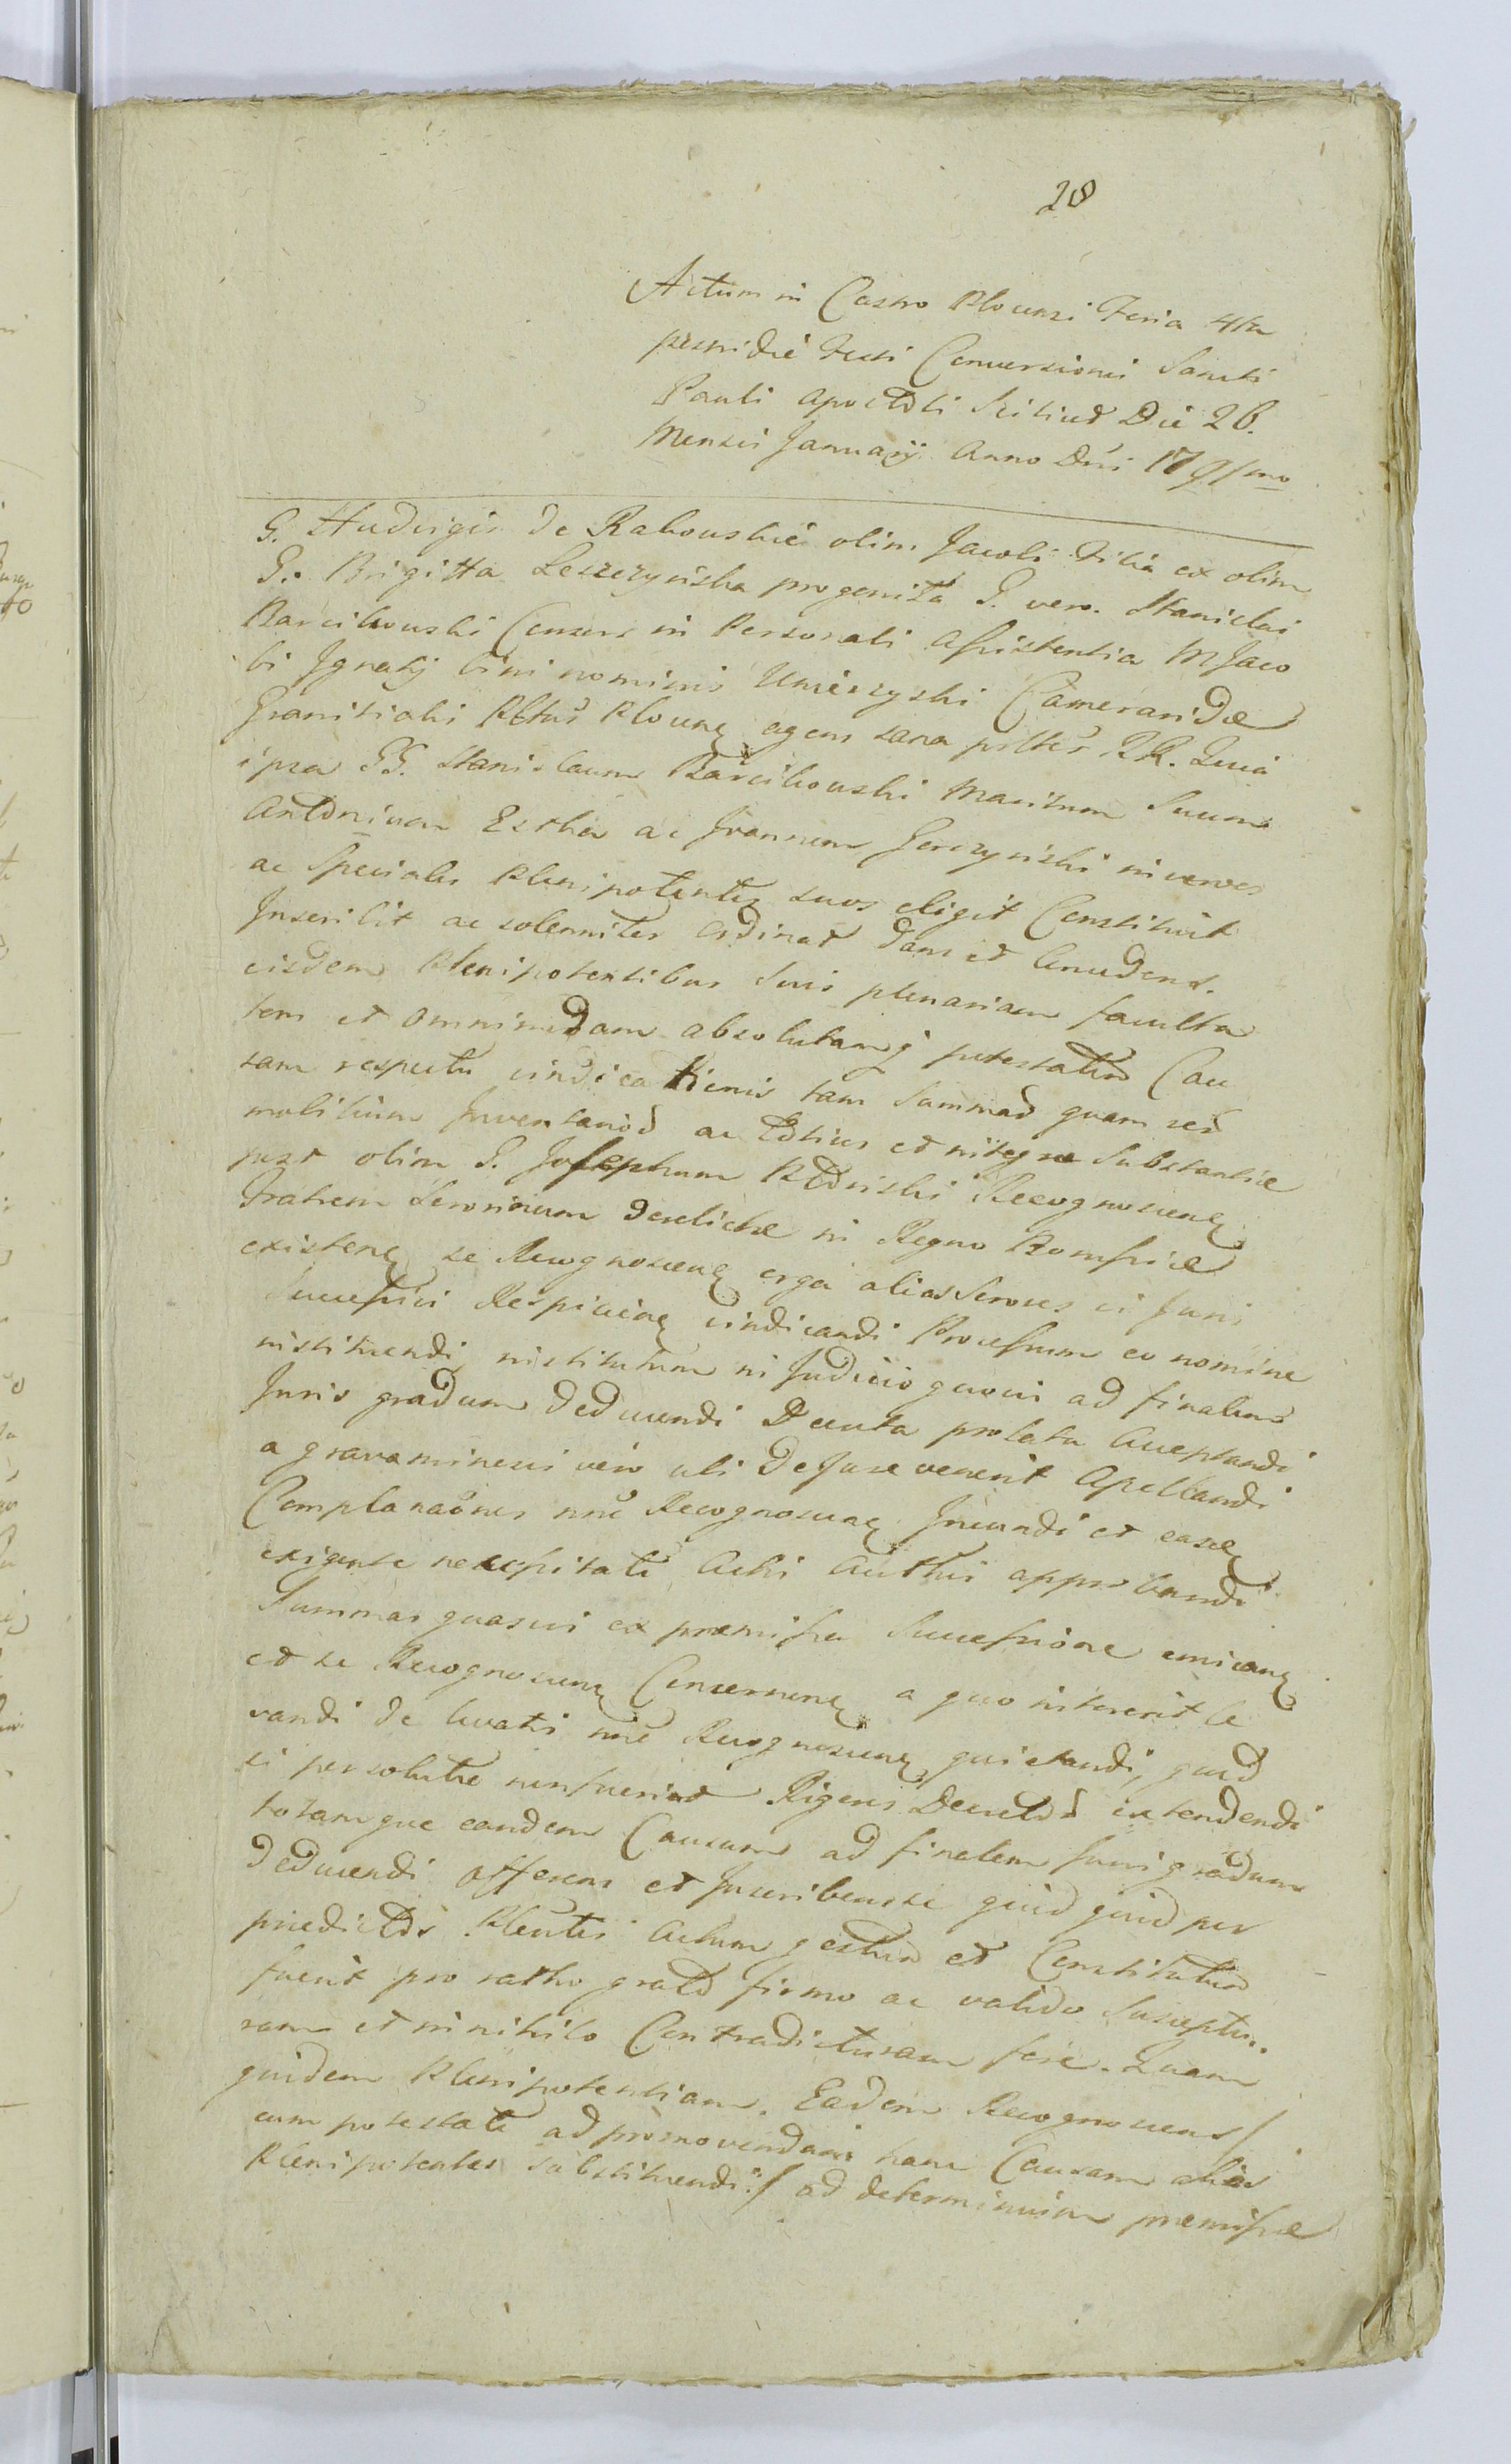 28
Actum in Castro Plocensi Feria 4ta
postridie Festi Conversionis Sancti
Pauli Apostoli Scilicet Die 26.
Mensis Januarÿ Anno Dni 1791mo
G. Hedvigis de Rakowskie olim Jacobi Filia ex olim
G. Brigitta Leszczynska progenita G. vero Stanislai
Barcikowski Consors in Personali Assistentia M Jaco
bi Ignatÿ bini nominis Umieszyski Cameraridæ
Granitialis Pltus Plocens agens sana pntbus RR. Quia
ipsa GG. Stanislaum Barcikowski Maritum Suum
Antonium Estka ac Joannem Gorczynski niveros
ac Speciales Plenipotentes suos eligit Constituit
Inscribit ac solenniter Ordinat dans et Concedens
eisdem Plenipotentibus Suis plenariam faculta
tem et omnimodam absolutamq potestatem Cau
sam respectu vindicationis tam Summar quam rer
mobilium Inventarior ac totius et integræ Substantiæ
post olim G. Josephum Recognoscens
Fratrem Sororinum derelictæ in Regno Borussiæ
existens se Recognoscens erga alias Sorores ex Juri
Successivi Respiciens vindicandi Processum eo nomine
instituendi institutum in Judicio quovis ad finalem
Juris gradum deducendi Decreta prolata Acceptandi
a gravaminosis vero ubi De Jure venerit Apellandi
Complanaones nne Recognoscens Ineundi et easdem
exigente necessitate Actis Authcis approbandi
Summas quasvis ex præmissa Successione emicans
et se Recognoscens Concernens a quo intererit le
vandi de levatis nne Recognoscens quietandi, quod
si persolutæ non fuerint Rigores Decretor extendendi
totamque eandem Causam ad finalem Juris gradum
deducendi offerens et Inscribens se quid quid per
prædictos Plentes Actum gestum et Constitutum
fuerit pro ratho grato firmo ac valido Susceptu..
ram et in nihilo Contradicturam fore. Quam
quidem Plenipotentiam. Eadem Recognoscens /
cum potestate ad promovendam hanc Causam alios
Plenipotentes substituendi / ad determinium præmissæ